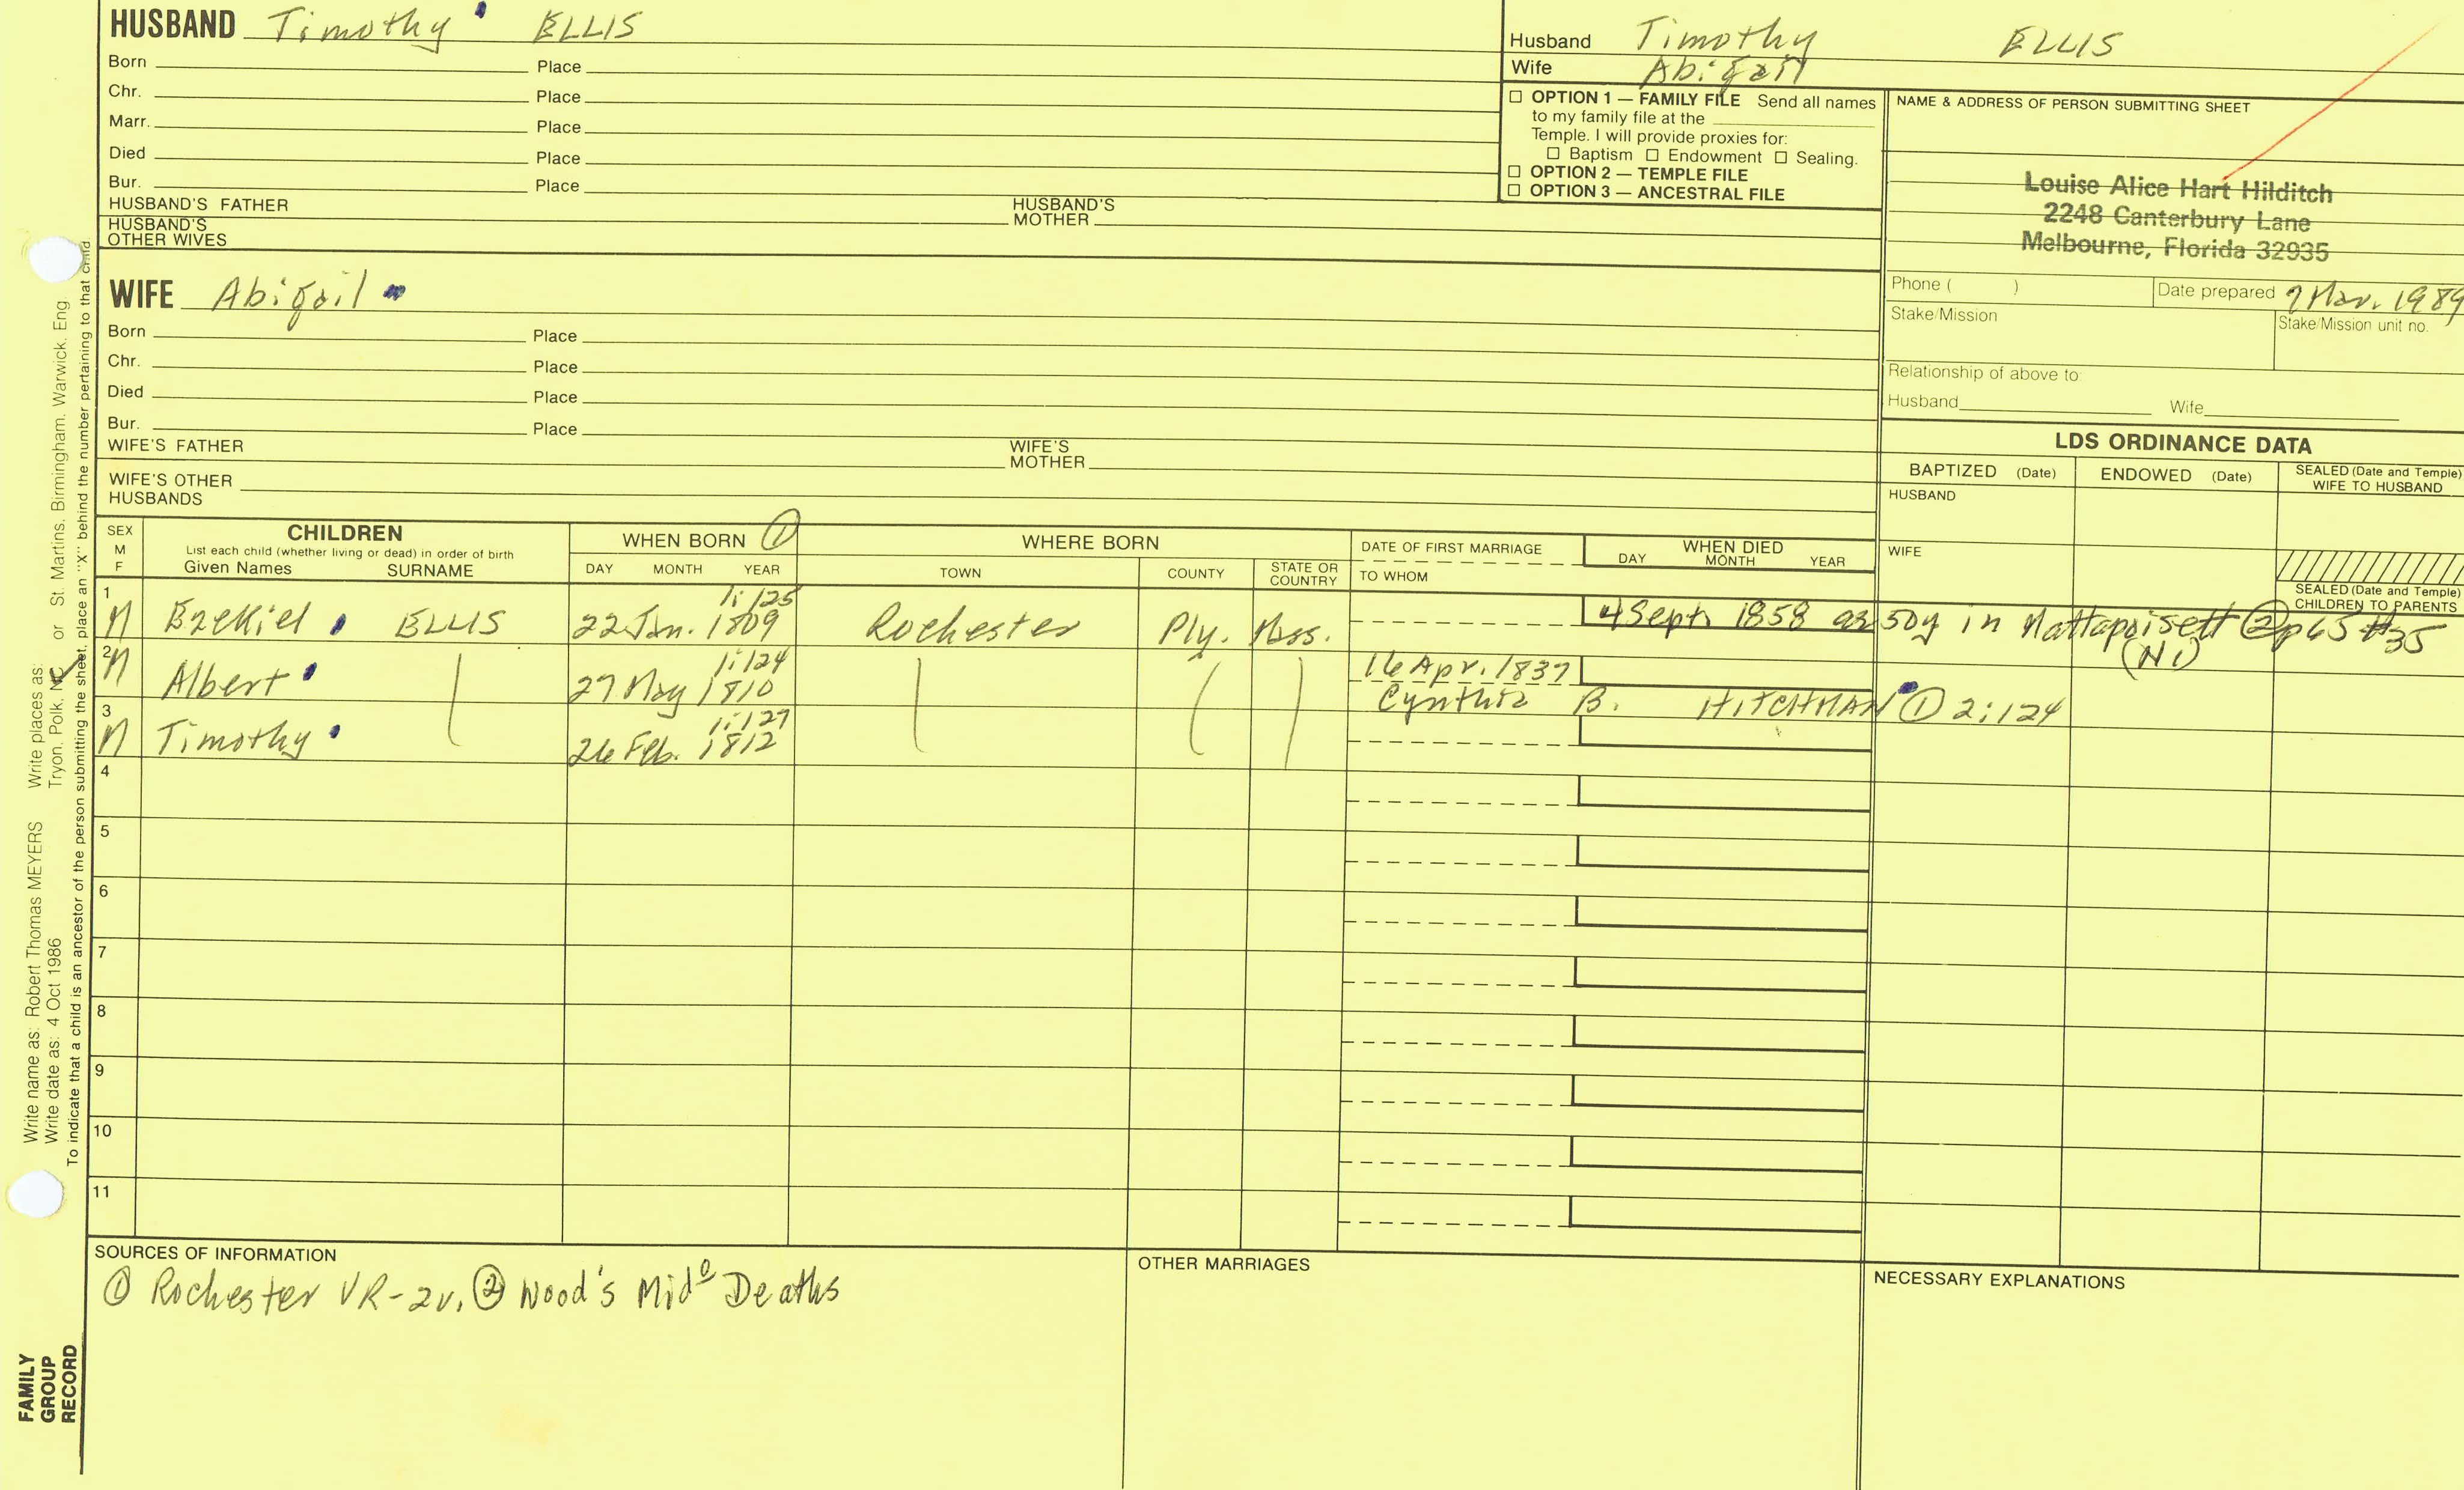 HUSBAND Timothy ELLIS
Born Place
Chr. Place
Marr. Place
Died Place
Bur. Place
HUSBAND'S FATHER HUSBAND'S MOTHER
HUSBAND'S OTHER WIVES
Husband Timothy ELLIS
Wife Abigail
☐ OPTION 1 — FAMILY FILE Send all names
to my family file at the
Temple. I will provide proxies for:
☐ Baptism ☐ Endowment ☐ Sealing.
☐ OPTION 2 — TEMPLE FILE
☐ OPTION 3 — ANCESTRAL FILE
NAME & ADDRESS OF PERSON SUBMITTING SHEET
Louise Alice Hart Hilditch
2248 Canterbury Lane
Melbourne, Florida 32935
Phone ( ) Date prepared 7 Mar. 1989
Stake/Mission Stake/Mission unit no.
Relationship of above to:
Husband Wife
WIFE Abigail
Born Place
Chr. Place
Died Place
Bur. Place
WIFE'S FATHER WIFE'S MOTHER
WIFE'S OTHER HUSBANDS
LDS ORDINANCE DATA
BAPTIZED (Date) ENDOWED (Date) SEALED (Date and Temple) WIFE TO HUSBAND
HUSBAND
WIFE
SEALED (Date and Temple) CHILDREN TO PARENTS
SEX M F
CHILDREN
List each child (whether living or dead) in order of birth
Given Names SURNAME
WHEN BORN ①
DAY MONTH YEAR
WHERE BORN
TOWN COUNTY STATE OR COUNTRY
DATE OF FIRST MARRIAGE
TO WHOM
WHEN DIED
DAY MONTH YEAR
1 M Ezekiel ELLIS 1:125 22 Jan. 1809 Rochester Ply. Mss. 4 Sept 1858 as 50y in Mattapoisett ② p65 #35
(N1)
2 M Albert 1:124 27 May 1810 16 Apr. 1837
Cynthia B. HITCHMAN ① 2:124
3 M Timothy 1:127 26 Feb. 1812
4
5
6
7
8
9
10
11
SOURCES OF INFORMATION
① Rochester VR-2v. ② Wood's Mid⁰ Deaths
OTHER MARRIAGES
NECESSARY EXPLANATIONS
Write name as: Robert Thomas MEYERS Write places as:
Write date as: 4 Oct 1986 Tryon, Polk, NC or St. Martins, Birmingham, Warwick, Eng
To indicate that a child is an ancestor of the person submitting the sheet, place an "X" behind the number pertaining to that child.
FAMILY
GROUP
RECORD